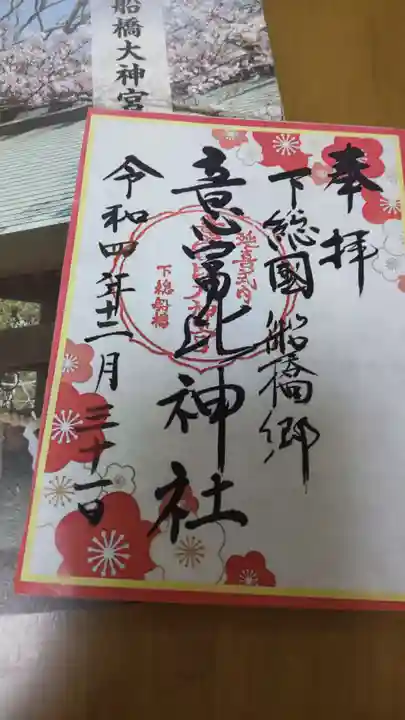 船橋大神宮
奉拝
下総國船橋郷
意富比神社
令和四年十二月三十一日
延喜式内
下総船橋